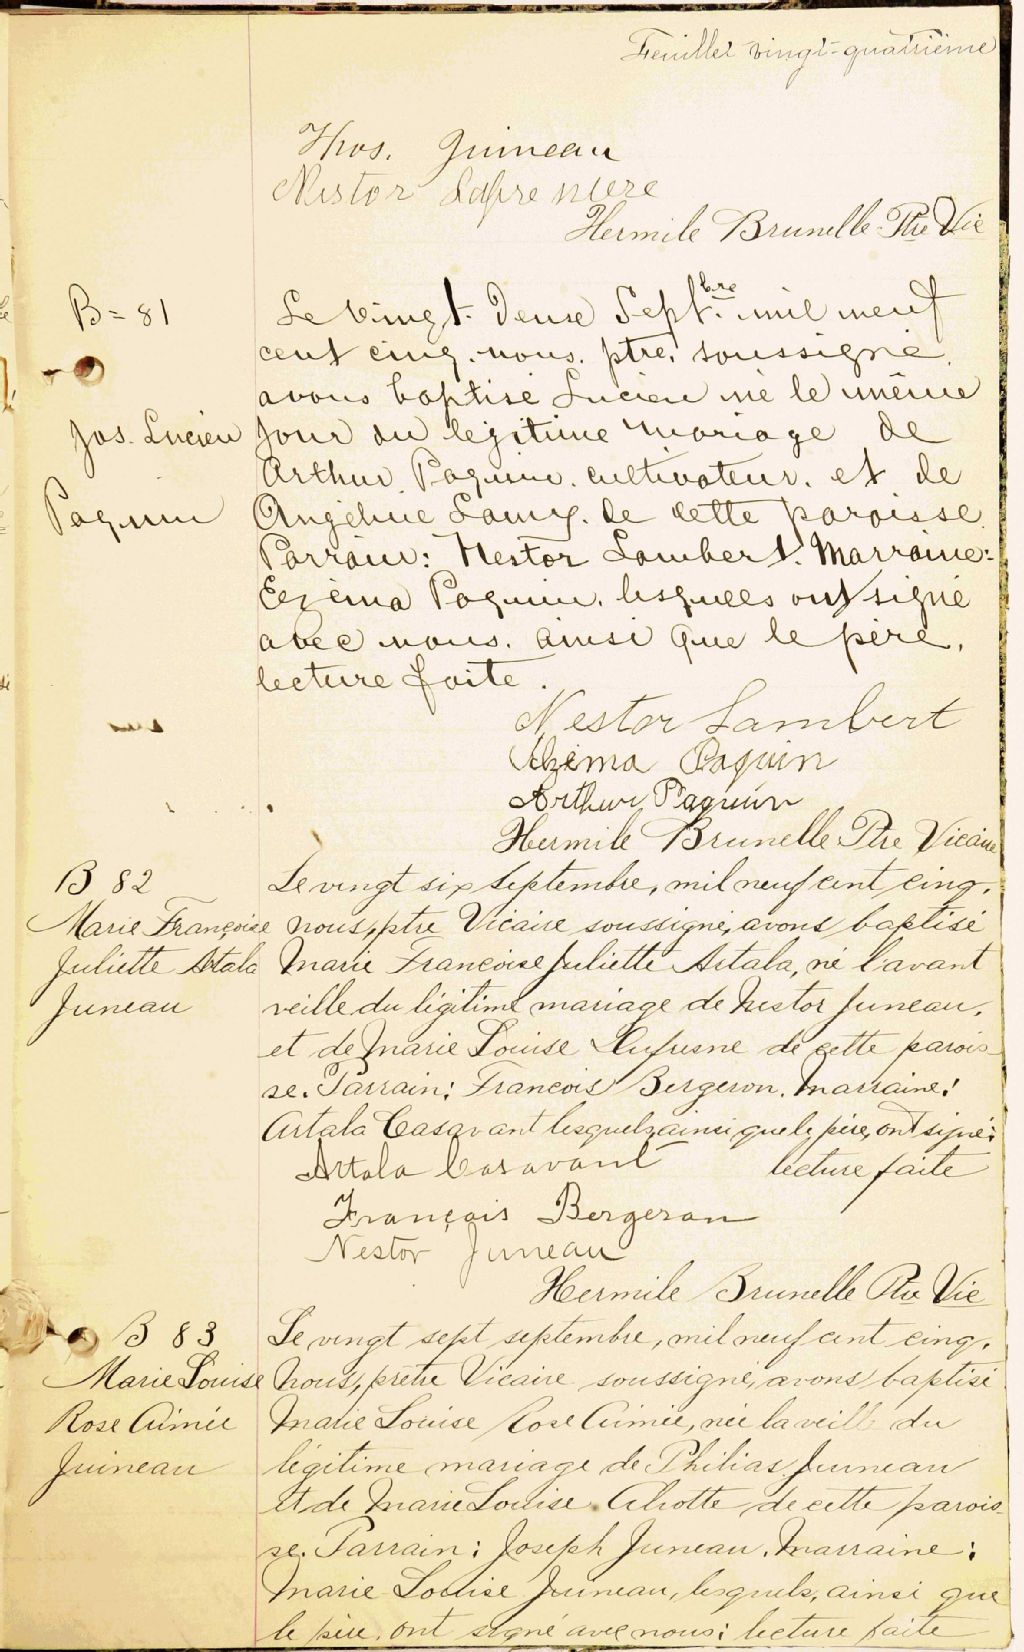 Feuillet vingt-quatrième
Thos. Juineau
Nestor Lafreniere
Hermile Brunelle Ptre Vic
B = 81
Jos. Lucien
Paquin
Le vingt-Deuse Sept.bre mil neuf
cent cinq. nous. ptre. soussigné
avons baptisé Lucien né le même
jour du legitime mariage de
Arthur Paquin. cultivateur. et de
Angéline Lamy. de cette paroisse
Parrain: Nestor Lambert. Marraine:
Ezéma Paquin. lesquels ont signé
avec nous. ainsi que le père.
lecture faite.
Nestor Lambert
Azéma Paquin
Arthur Paquin
Hermile Brunelle Ptre Vicaire
B 82
Marie Françoise
Juliette Artala
Juneau
Le vingt six septembre, mil neuf cent cinq.
nous, ptre Vicaire soussigné, avons baptisé
Marie Francoise Juliette Artala, né l'avant
veille du légitime mariage de Nestor Juneau.
et de Marie Louise Dufresne de cette parois-
se. Parrain: Francois Bergeron. Marraine:
Artala Casavant lesquels, ainsi que le père, ont signé:
Artala Casavant lecture faite
François Bergeron
Nestor Juneau
Hermile Brunelle Ptre Vic
B 83
Marie Louise
Rose Aimée
Juineau
Le vingt sept septembre, mil neuf cent cinq.
Nous, prêtre Vicaire soussigné, avons baptisé
Marie Louise Rose Aimée, née la veille du
légitime mariage de Philias Juneau
et de Marie Louise Aliotte de cette parois-
se. Parrain: Joseph Juneau. Marraine:
Marie Louise Juineau, lesquels, ainsi que
le père, ont signé avec nous: lecture faite